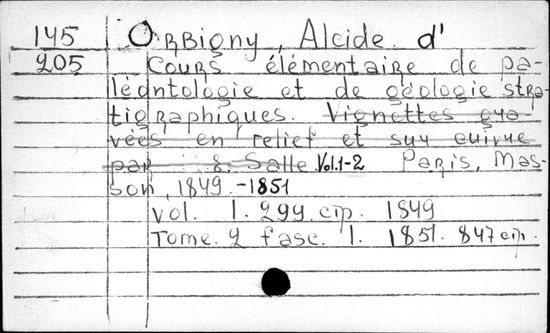 145 Orbigny, Alcide d'
205 Cours élémentaire de pa-
léontologie et de géologie stra-
tigraphiques. Vignettes gra-
vées en relief et sur cuivre
par E. Salle Vol.1-2 Paris, Mas-
son, 1849.-1851
vol. 1. 299 стр. 1849
Tome. 2 fasc. 1. 1851. 847 стр.